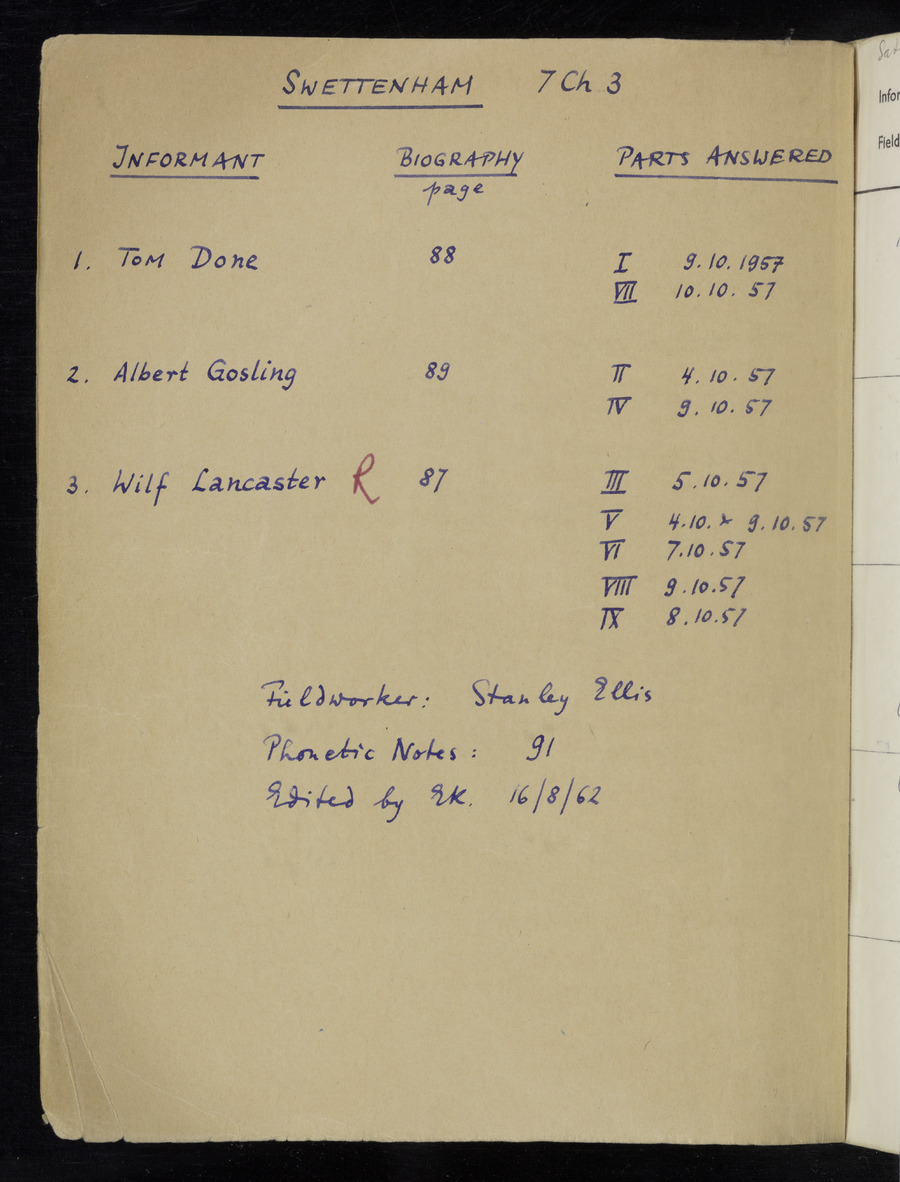 SWETTENHAM 7 Ch 3
INFORMANT BIOGRAPHY PARTS ANSWERED
page
1. TOM Done 88 I 9.10.1957
VII 10.10.57
2. Albert Gosling 89 II 4.10.57
IV 9.10.57
3. Wilf Lancaster R 87 III 5.10.57
V 4.10. & 9.10.57
VI 7.10.57
VIII 9.10.57
IX 8.10.57
Fieldworker: Stanley Ellis
Phonetic Notes: 91
Edited by EK. 16/8/62
Infor
Field